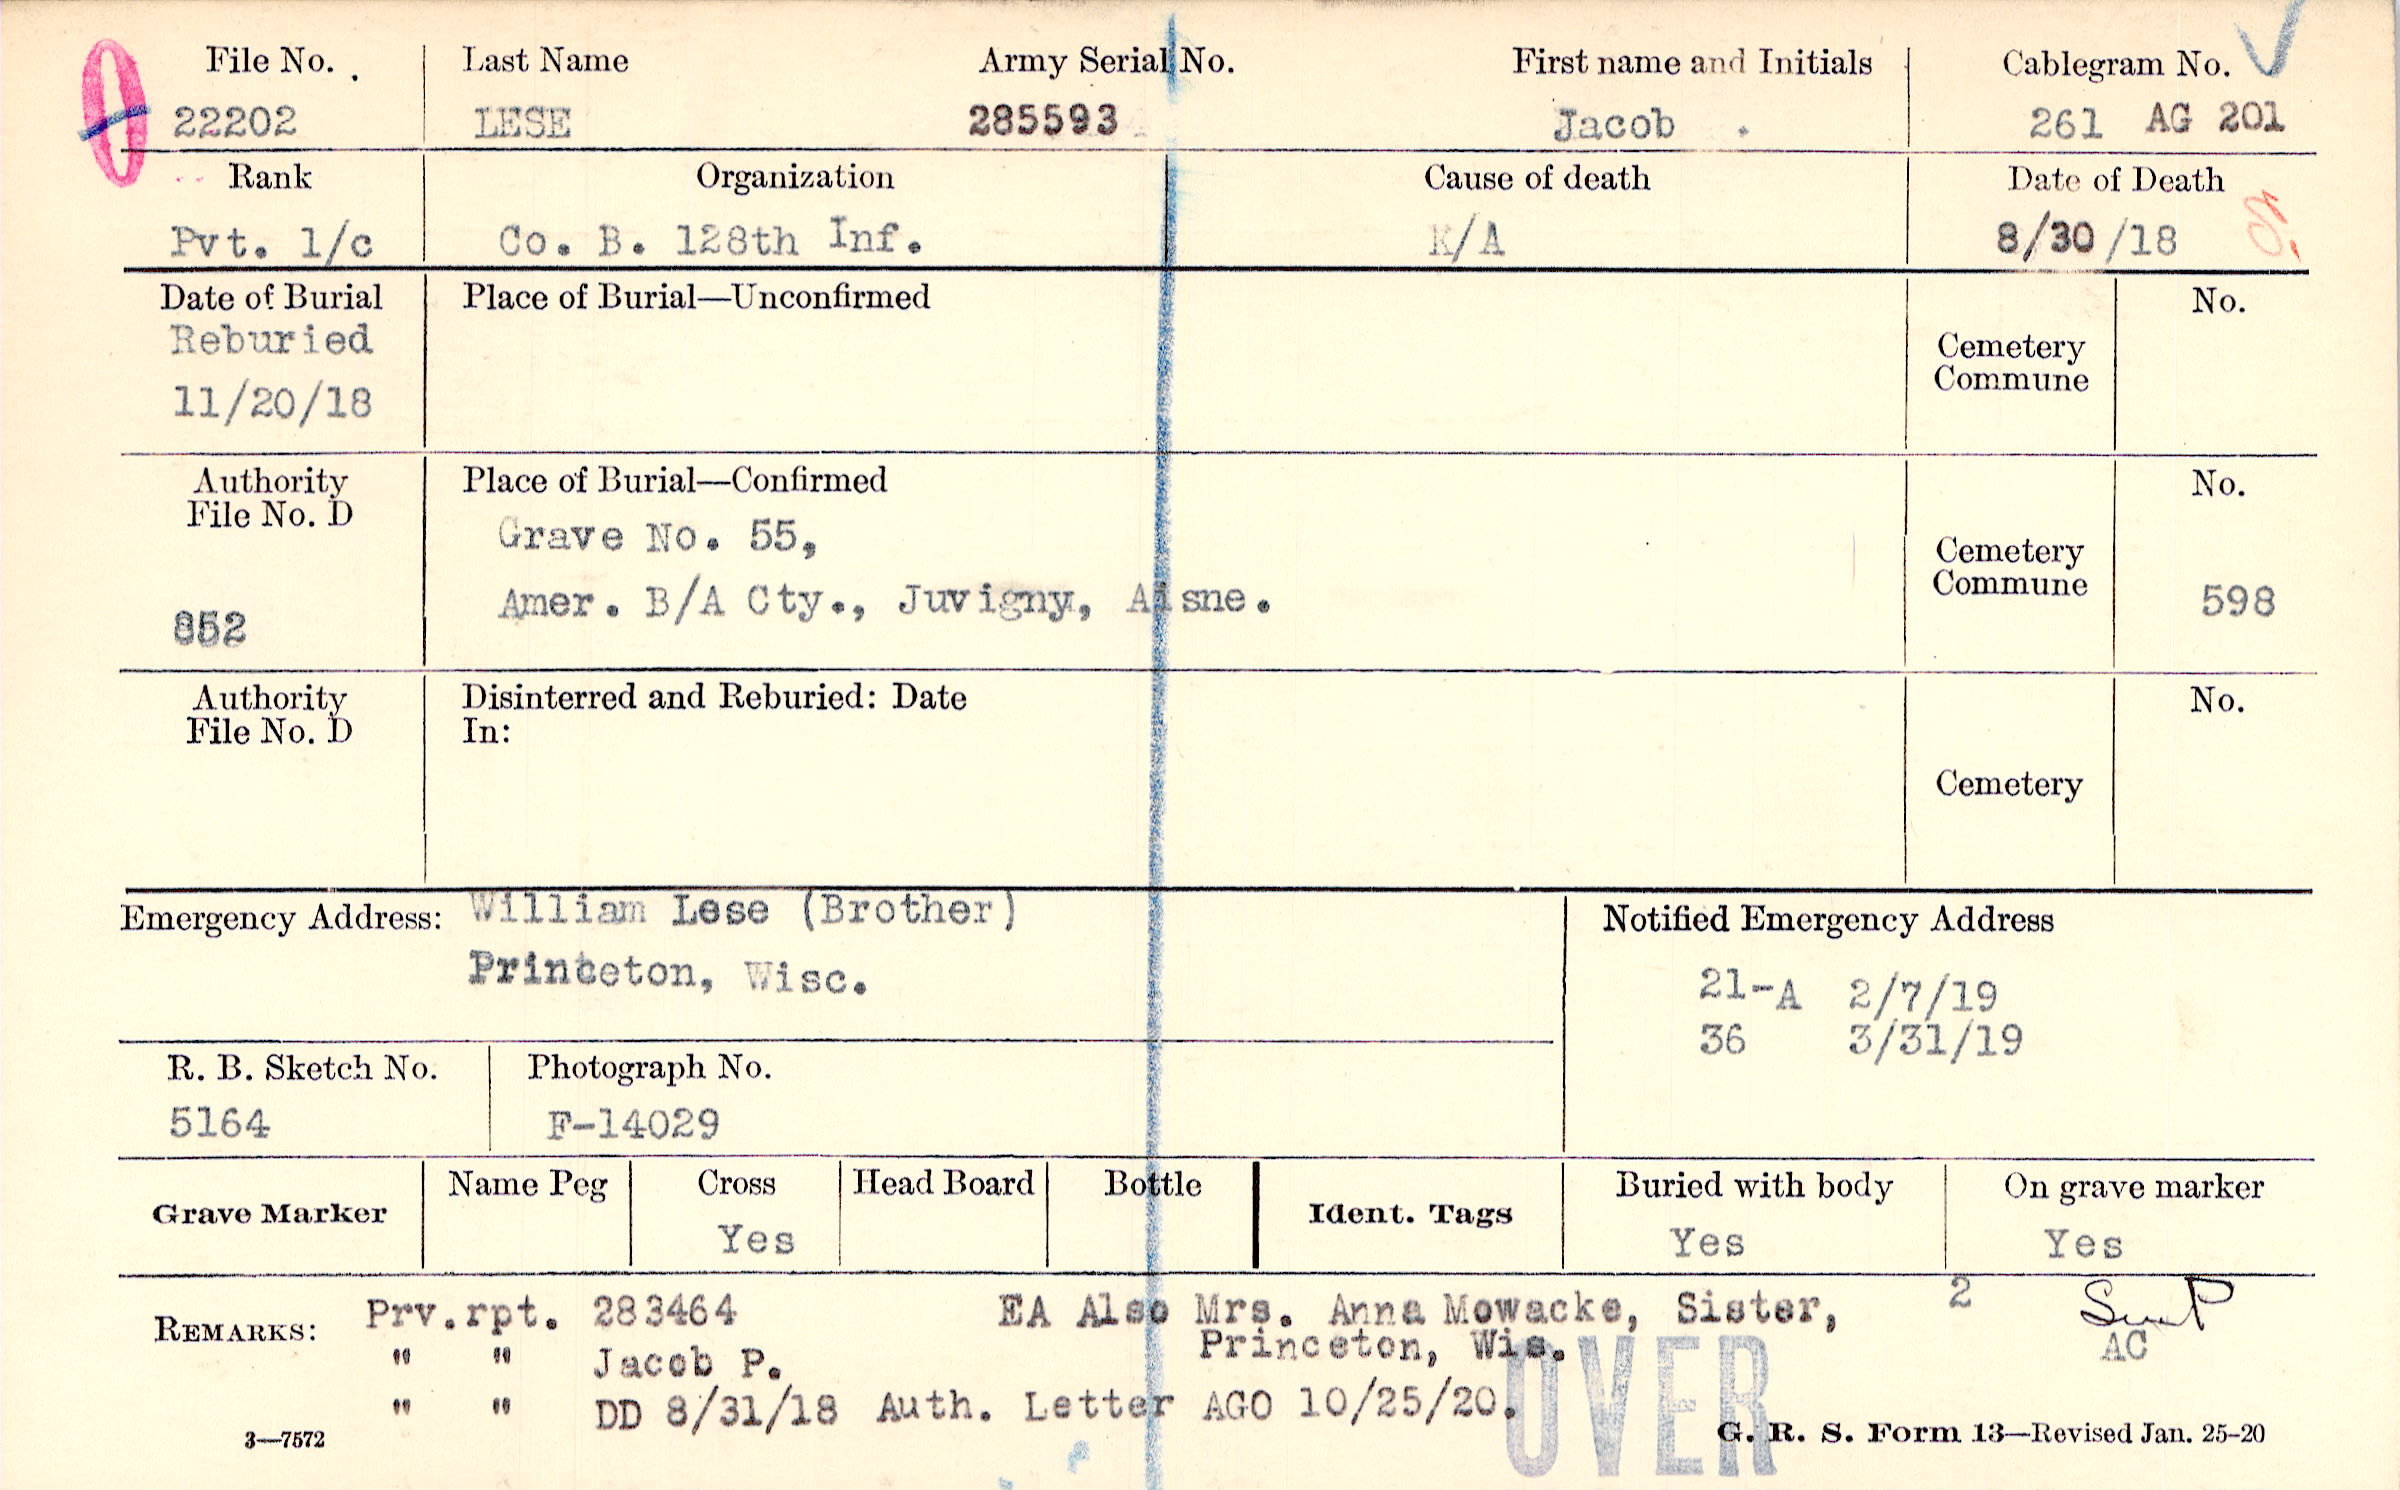 File No. Last Name Army Serial No. First name and Initials Cablegram No.
22202 LESE 285593 Jacob . 261 AG 201
Rank Organization Cause of death Date of Death
Pvt. 1/c Co. B. 128th Inf. K/A 8/30/18
Date of Burial Place of Burial—Unconfirmed No.
Reburied
Cemetery
Commune
11/20/18
Authority Place of Burial—Confirmed No.
File No. D
Grave No. 55,
Cemetery
Commune
852 Amer. B/A Cty., Juvigny, Aisne. 598
Authority Disinterred and Reburied: Date No.
File No. D In:
Cemetery
Emergency Address: William Lese (Brother) Notified Emergency Address
Princeton, Wisc. 21-A 2/7/19
36 3/31/19
R. B. Sketch No. Photograph No.
5164 F-14029
Grave Marker Name Peg Cross Head Board Bottle Ident. Tags Buried with body On grave marker
Yes Yes Yes
REMARKS: Prv.rpt. 283464 EA Also Mrs. Anna Mowacke, Sister, 2
Princeton, Wis. AC
" " Jacob P.
" " DD 8/31/18 Auth. Letter AGO 10/25/20.
OVER
3—7572 G. R. S. Form 13—Revised Jan. 25-20